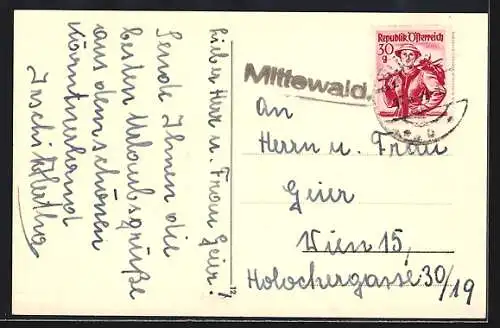 Lieber Herr u. Frau Geier!
Sende Ihnen die
besten Urlaubsgrüße
aus dem schönen
Kärntnerland
12
Republik Österreich
30
g
Mittewald
An
Herrn u. Frau
Geier
Wien 15,
Holochergasse 30/19